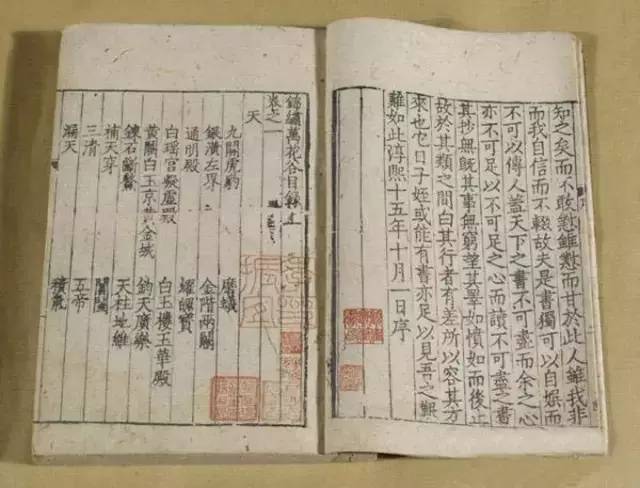 知之矣而不敢雖而甘於此人雖我非
而我自信而不輟故夫是書獨可以自娛而
不可以傳人蓋天下之書不可盡而余之心
亦不可足以不可足之心而讀不可盡之書
其抄無既其事無窮其如憤如而後止
故於其類之間白其行者有差所以容其方
來也它日子姪或能有書亦足以見吾之艱
難如此淳熙十五年十月一日序
錦繡萬花谷目録上
卷之一
天
九關虎豹 磨蟻
銀潢左界 金階兩闕
通明殿 耀魄寶
白瑶宫凝虛殿 白玉樓玉華殿
黄闕白玉京黄金城 鈞天廣樂
鍊石斷鼇 天柱地維
補天穿 閶闔
三清 五帝
漏天 積氣